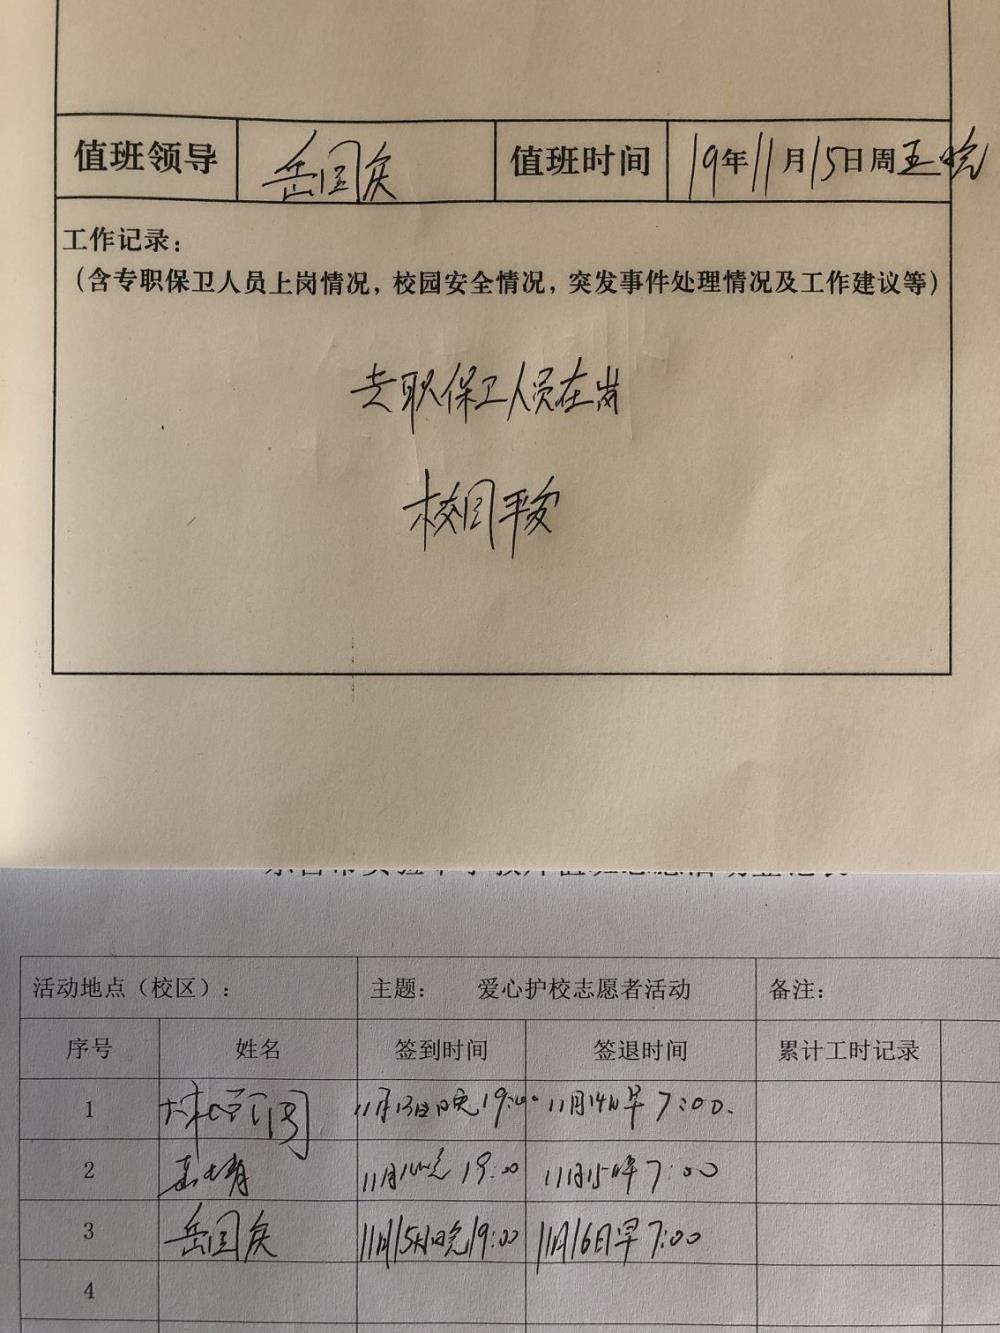 值班领导 岳国庆 值班时间 19年11月15日周五晚
工作记录：
（含专职保卫人员上岗情况，校园安全情况，突发事件处理情况及工作建议等）
专职保卫人员在岗
校园平安
活动地点（校区）： 主题： 爱心护校志愿者活动 备注：
序号 姓名 签到时间 签退时间 累计工时记录
1 11月13日晚19:00 11月14日早7:00.
2 11月14晚19:00 11月15早7:00
3 岳国庆 11月15日晚19:00 11月16日早7:00
4